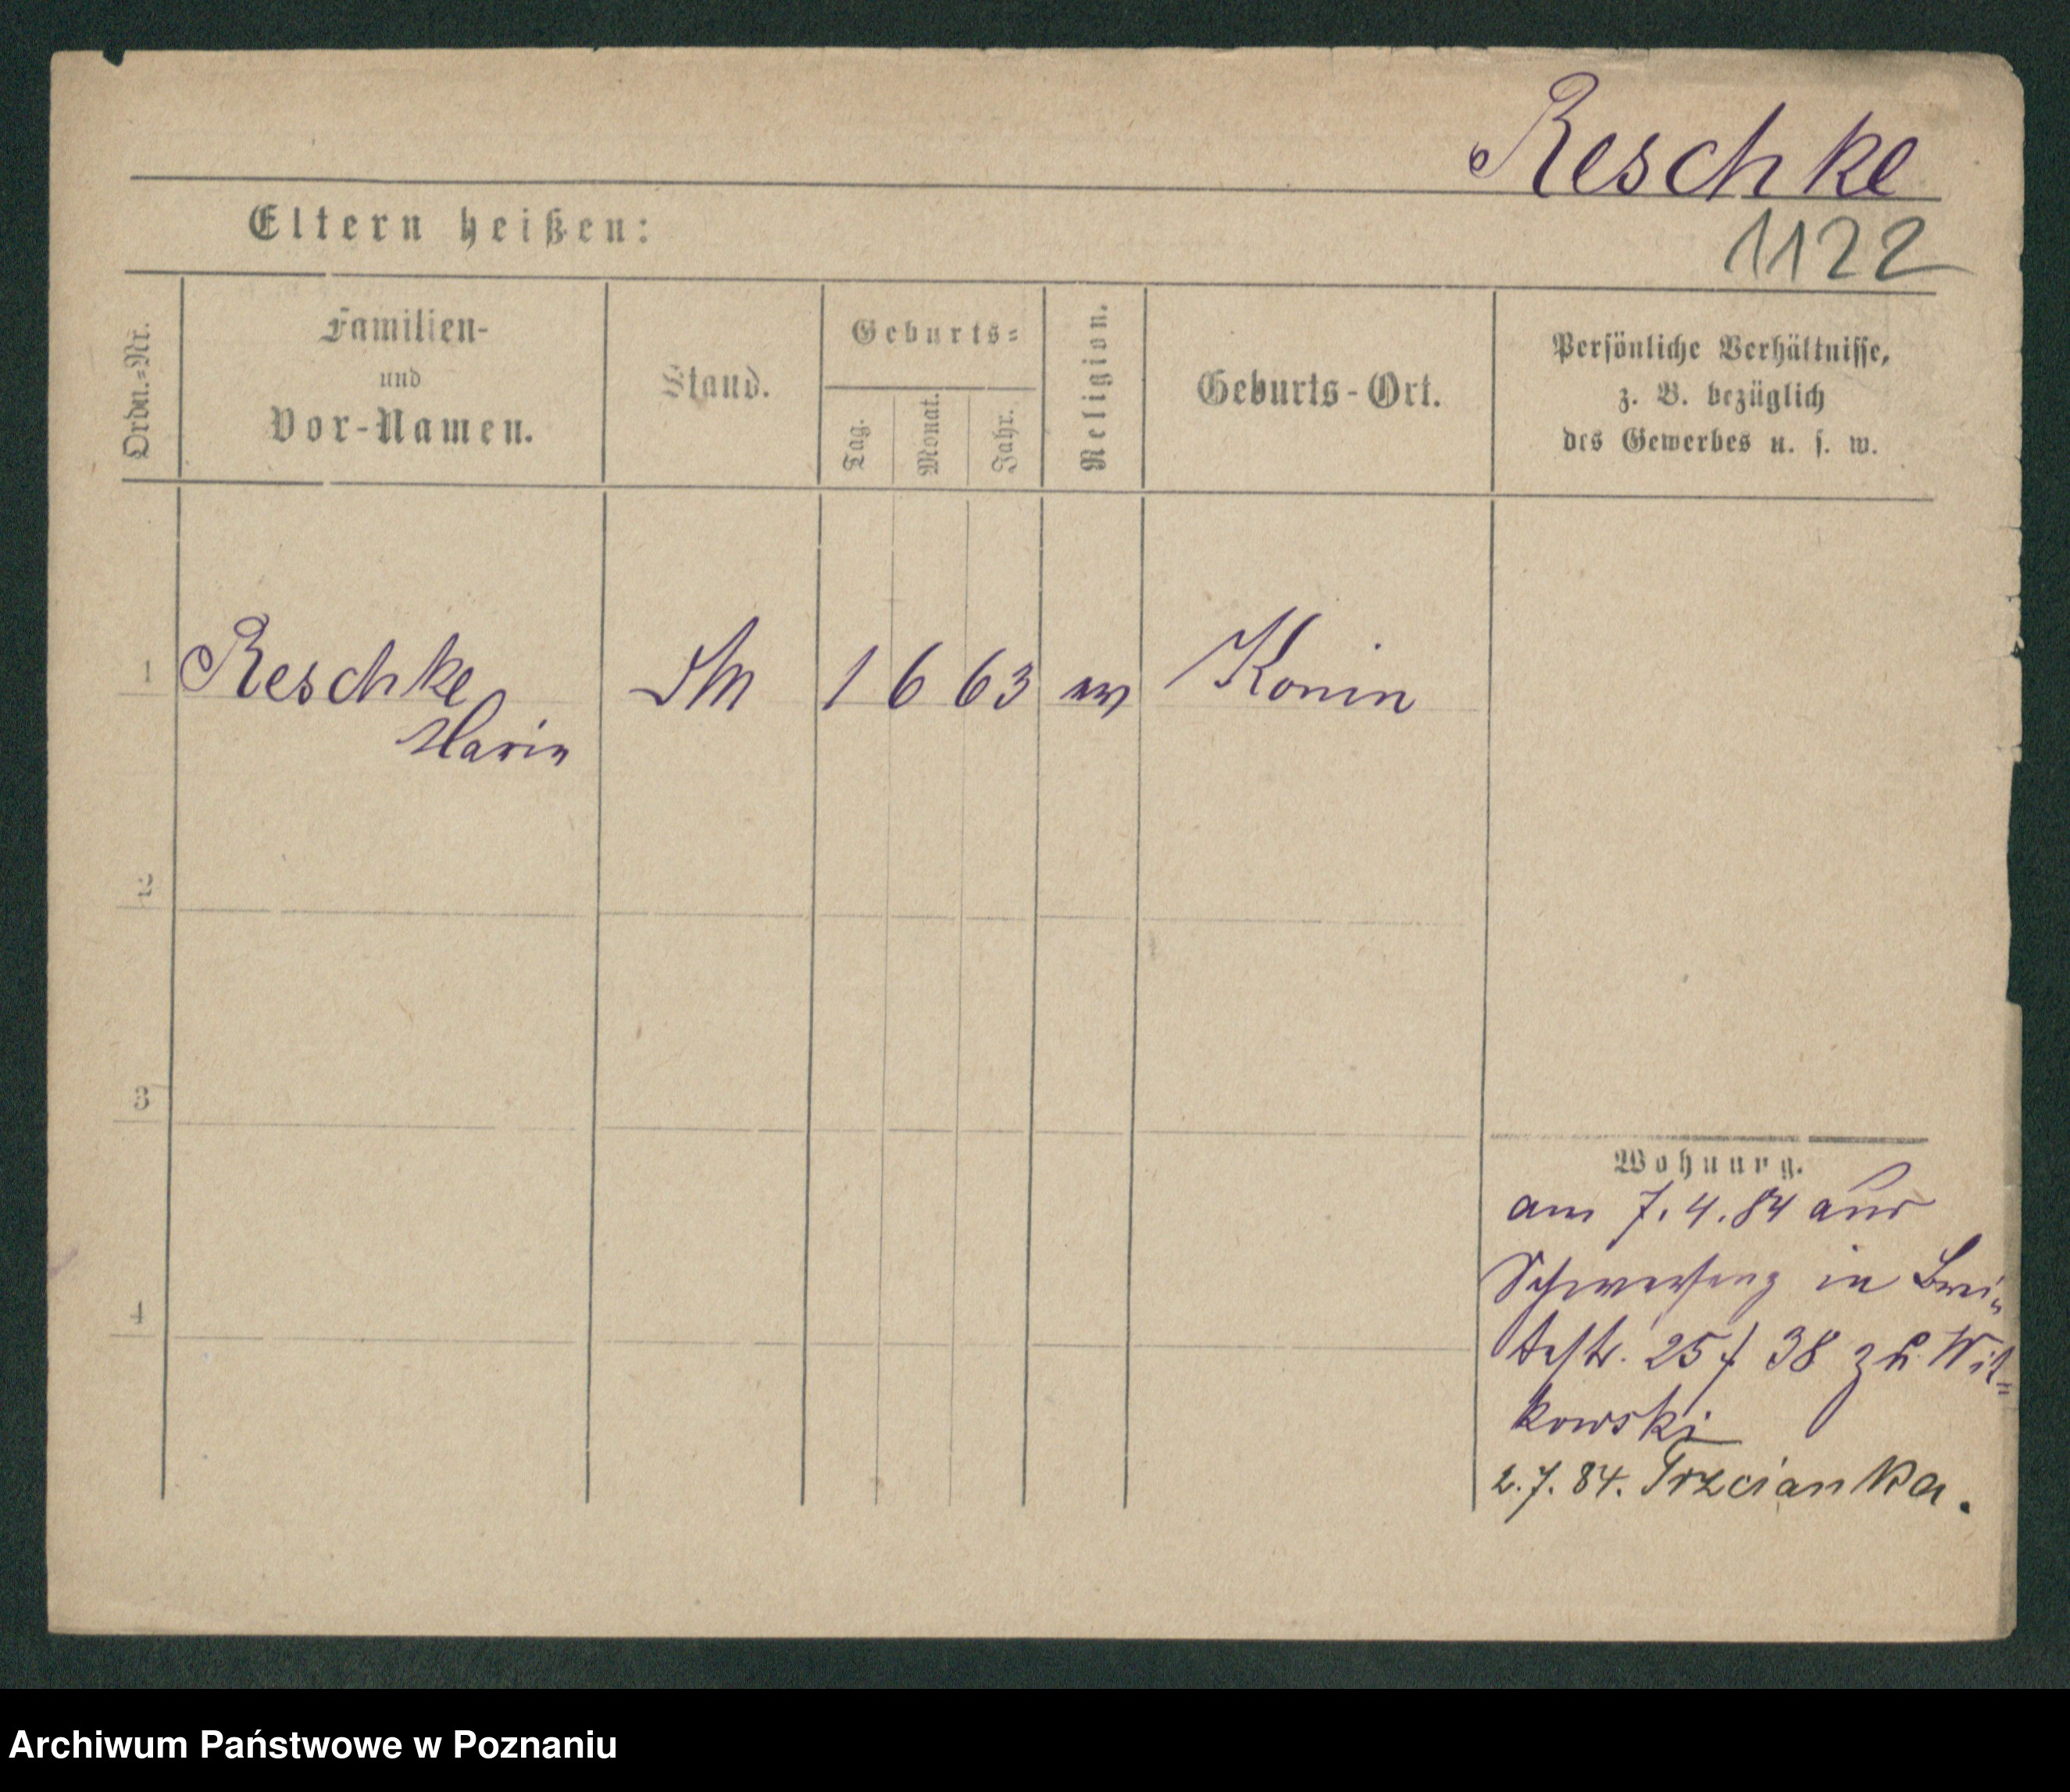 Reschke
Eltern heißen:
1122
Ordn.=Nr.
Familien-
und
Vor-Namen.
Stand.
Geburts=
Tag.
Monat.
Jahr.
Religion.
Geburts-Ort.
Persönliche Verhältnisse,
z. B. bezüglich
des Gewerbes u. s. w.
1 Reschke 1 6 63 ev Konin
Marie
2
3
4
Wohnung.
am 7.4.84 aus
Schwersenz in Brei-
testr. 25/38 zu Wit=
kowski
2.7.84. Trzcianka.
Archiwum Państwowe w Poznaniu